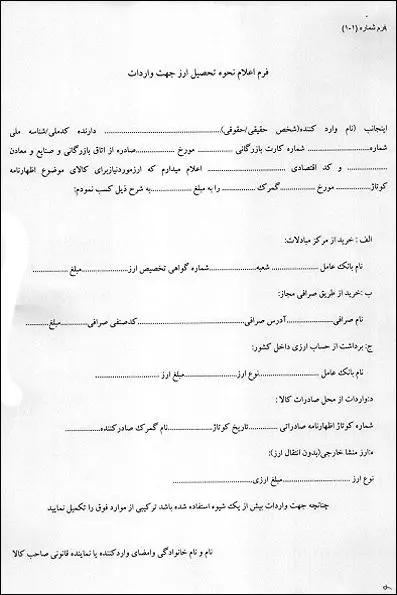 فرم شماره (۱-۱)
فرم اعلام نحوه تحصیل ارز جهت واردات
اینجانب (نام وارد کننده(شخص حقیقی/حقوقی)............................ دارنده کدملی/شناسه ملی
شماره............................ شماره کارت بازرگانی ............ مورخ ..............صادره از اتاق بازرگانی و صنایع و معادن
.............. و کد اقتصادی ............................ اعلام میدارم که ارزموردنیازبرای کالای موضوع اظهارنامه
کوتاژ.............. مورخ............گمرک ............ را به مبلغ ..............به شرح ذیل کسب نمودم:
الف : خرید از مرکز مبادلات:
نام بانک عامل .................... شعبه....................شماره گواهی تخصیص ارز....................مبلغ ............
ب :خرید از طریق صرافی مجاز:
نام صرافی................آدرس صرافی............................کدصنفی صرافی................مبلغ............
ج: برداشت از حساب ارزی داخل کشور:
نام بانک عامل ............................نوع ارز....................مبلغ ارز ....................
د:واردات از محل صادرات کالا :
شماره کوتاژ اظهارنامه صادراتی ............تاریخ کوتاژ............نام گمرک صادرکننده................
ه:ارز منشا خارجی(بدون انتقال ارز):
نوع ارز ....................مبلغ ارزی....................
چنانچه جهت واردات بیش از یک شیوه استفاده شده باشد ترکیبی از موارد فوق را تکمیل نمایید
نام و نام خانوادگی وامضای واردکننده یا نماینده قانونی صاحب کالا